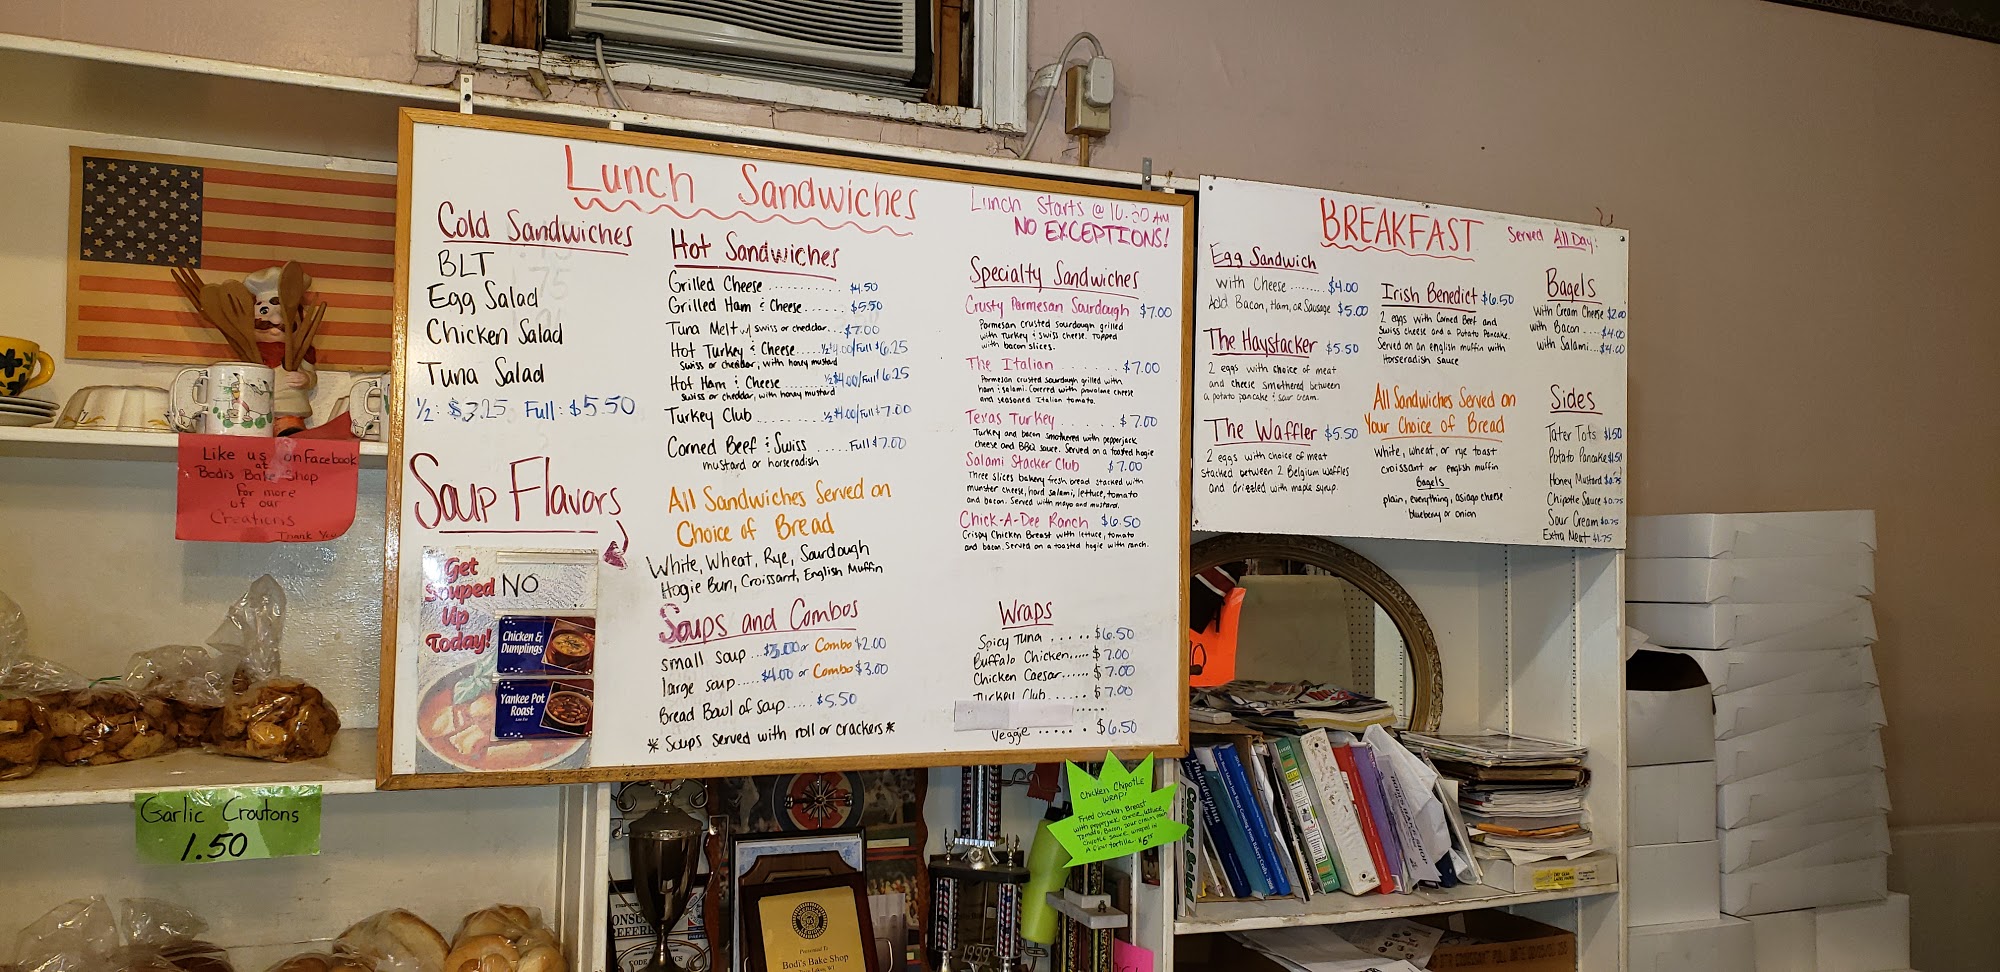 Lunch Sandwiches
Lunch Starts @ 10:30 AM
NO EXCEPTIONS!
Cold Sandwiches
BLT
Egg Salad
Chicken Salad
Tuna Salad
1/2: $3.25 Full: $5.50
Soup Flavors
Get
Souped
Up
Today!
NO
Chicken &
Dumplings
Yankee Pot
Roast
Hot Sandwiches
Grilled Cheese ........... $4.50
Grilled Ham & Cheese ..... $5.50
Tuna Melt w/ swiss or cheddar... $7.00
Hot Turkey & Cheese.... 1/2 $4.00/Full $6.25
Swiss or cheddar, with honey mustard
Hot Ham & Cheese ...... 1/2 $4.00/Full $6.25
Swiss or cheddar, with honey mustard
Turkey Club ........... 1/2 $4.00/Full $7.00
Corned Beef & Swiss ..... Full $7.00
mustard or horseradish
All Sandwiches Served on
Choice of Bread
White, Wheat, Rye, Sourdough
Hogie Bun, Croissant, English Muffin
Soups and Combos
small soup.... $3.00 or Combo $2.00
large soup..... $4.00 or Combo $3.00
Bread Bowl of soup..... $5.50
* Soups served with roll or crackers *
Specialty Sandwiches
Crusty Parmesan Sourdough $7.00
Parmesan crusted sourdough grilled
with Turkey & swiss cheese. Topped
with bacon slices.
The Italian ......... $7.00
Parmesan crusted sourdough grilled with
ham & salami. Covered with provalone cheese
and seasoned Italian tomato.
Texas Turkey ........ $7.00
Turkey and bacon smothered with pepperjack
cheese and BBQ sauce. Served on a toasted hogie
Salami Stacker Club $7.00
Three slices bakery fresh bread stacked with
munster cheese, hard salami, lettuce, tomato
and bacon. Served with mayo and mustard.
Chick-A-Dee Ranch $6.50
Crispy Chicken Breast with lettuce, tomato
and bacon. Served on a toasted hogie with ranch.
Wraps
Spicy Tuna ..... $6.50
Buffalo Chicken.... $7.00
Chicken Caesar...... $7.00
Turkey Club ...... $7.00
Veggie ...... $6.50
BREAKFAST
Served All Day!
Egg Sandwich
with Cheese ........ $4.00
Add Bacon, Ham, or Sausage $5.00
The Haystacker $5.50
2 eggs with choice of meat
and cheese smothered between
a potato pancake & sour cream.
The Waffler $5.50
2 eggs with choice of meat
stacked between 2 Belgium waffles
and drizzled with maple syrup.
Irish Benedict $6.50
2 eggs with Corned Beef and
Swiss cheese and a Potato Pancake.
Served on an english muffin with
Horseradish Sauce
All Sandwiches Served on
Your Choice of Bread
White, wheat, or rye toast
croissant or english muffin
Bagels
plain, everything, asiago cheese
blueberry or onion
Bagels
with Cream Cheese $2.00
with Bacon .... $4.00
with Salami.... $4.00
Sides
Tater Tots $1.50
Potato Pancake $1.50
Honey Mustard $0.75
Chipotle Sauce $0.75
Sour Cream $0.75
Extra Meat $1.75
Like us on Facebook
at
Bodi's Bake Shop
For more
of our
Creations
Thank You
Garlic Croutons
1.50
Chicken Chipotle
Wrap!
Fried Chicken Breast
with pepperjack cheese, lettuce,
Tomato, Bacon, sour cream and
Chipotle sauce, wrapped in
Presented To
Bodi's Bake Shop
1999